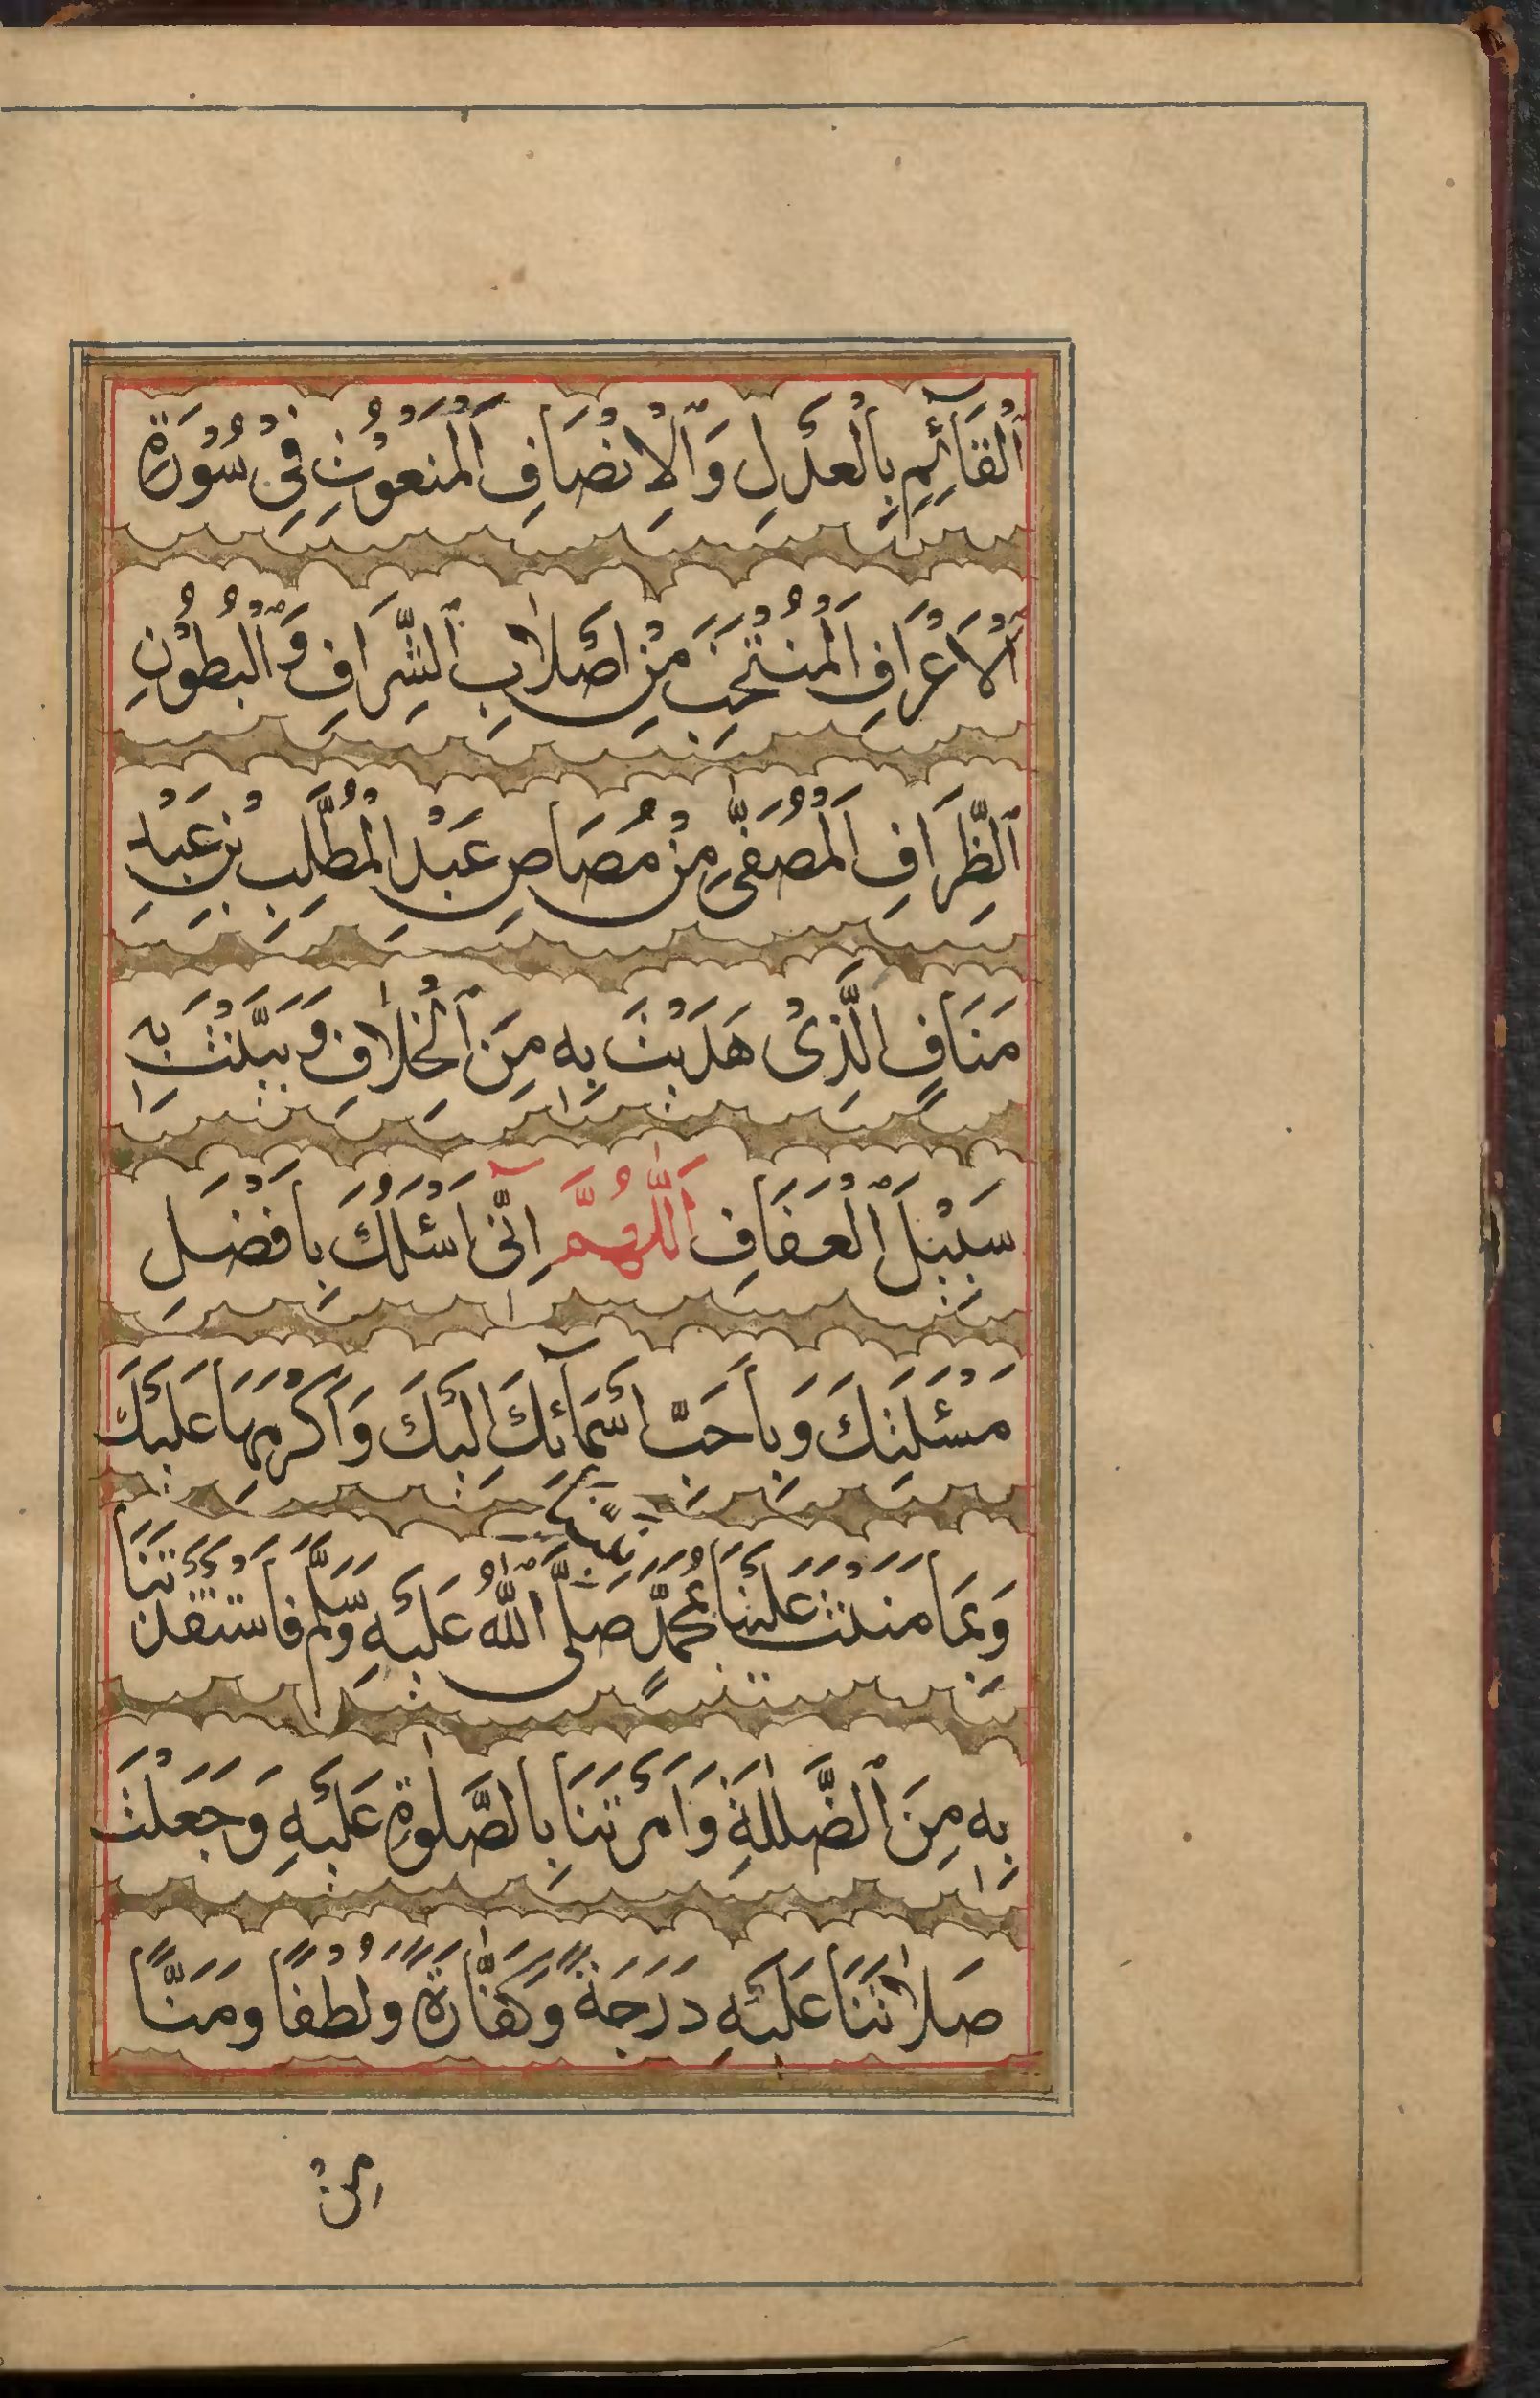 اَلْقَآئِمِ بِالْعَدْلِ وَالْاِنْصَافِ اَلْمَنْعُوْتِ فِيْ سُوْرَةِ
الْاَعْرَافِ اَلْمُنْتَخَبِ مِنْ اَصْلَابِ الشِّرَافِ وَالْبُطُوْنِ
الظِّرَافِ اَلْمُصَفّٰى مِنْ مُصَاصِ عَبْدِ الْمُطَّلِبِ بْنِ عَبْدِ
مَنَافٍ الَّذِيْ هَدَيْتَ بِهٖ مِنَ الْخِلَافِ وَبَيَّنْتَ بِهٖ
سَبِيْلَ الْعَفَافِ اَللّٰهُمَّ اِنِّيْ اَسْئَلُكَ بِاَفْضَلِ
مَسْئَلَتِكَ وَبِاَحَبِّ اَسْمَآئِكَ اِلَيْكَ وَاَكْرَمِهَا عَلَيْكَ
وَبِمَا مَنَنْتَ عَلَيْنَا بِمُحَمَّدٍ نَبِيِّنَا صَلَّى اللّٰهُ عَلَيْهِ وَسَلَّمَ فَاسْتَنْقَذْتَنَا
بِهٖ مِنَ الضَّلٰلَةِ وَاَمَرْتَنَا بِالصَّلٰوةِ عَلَيْهِ وَجَعَلْتَ
صَلَاتَنَا عَلَيْهِ دَرَجَةً وَكَفَّارَةً وَلُطْفًا وَمَنًّا
مِنْ